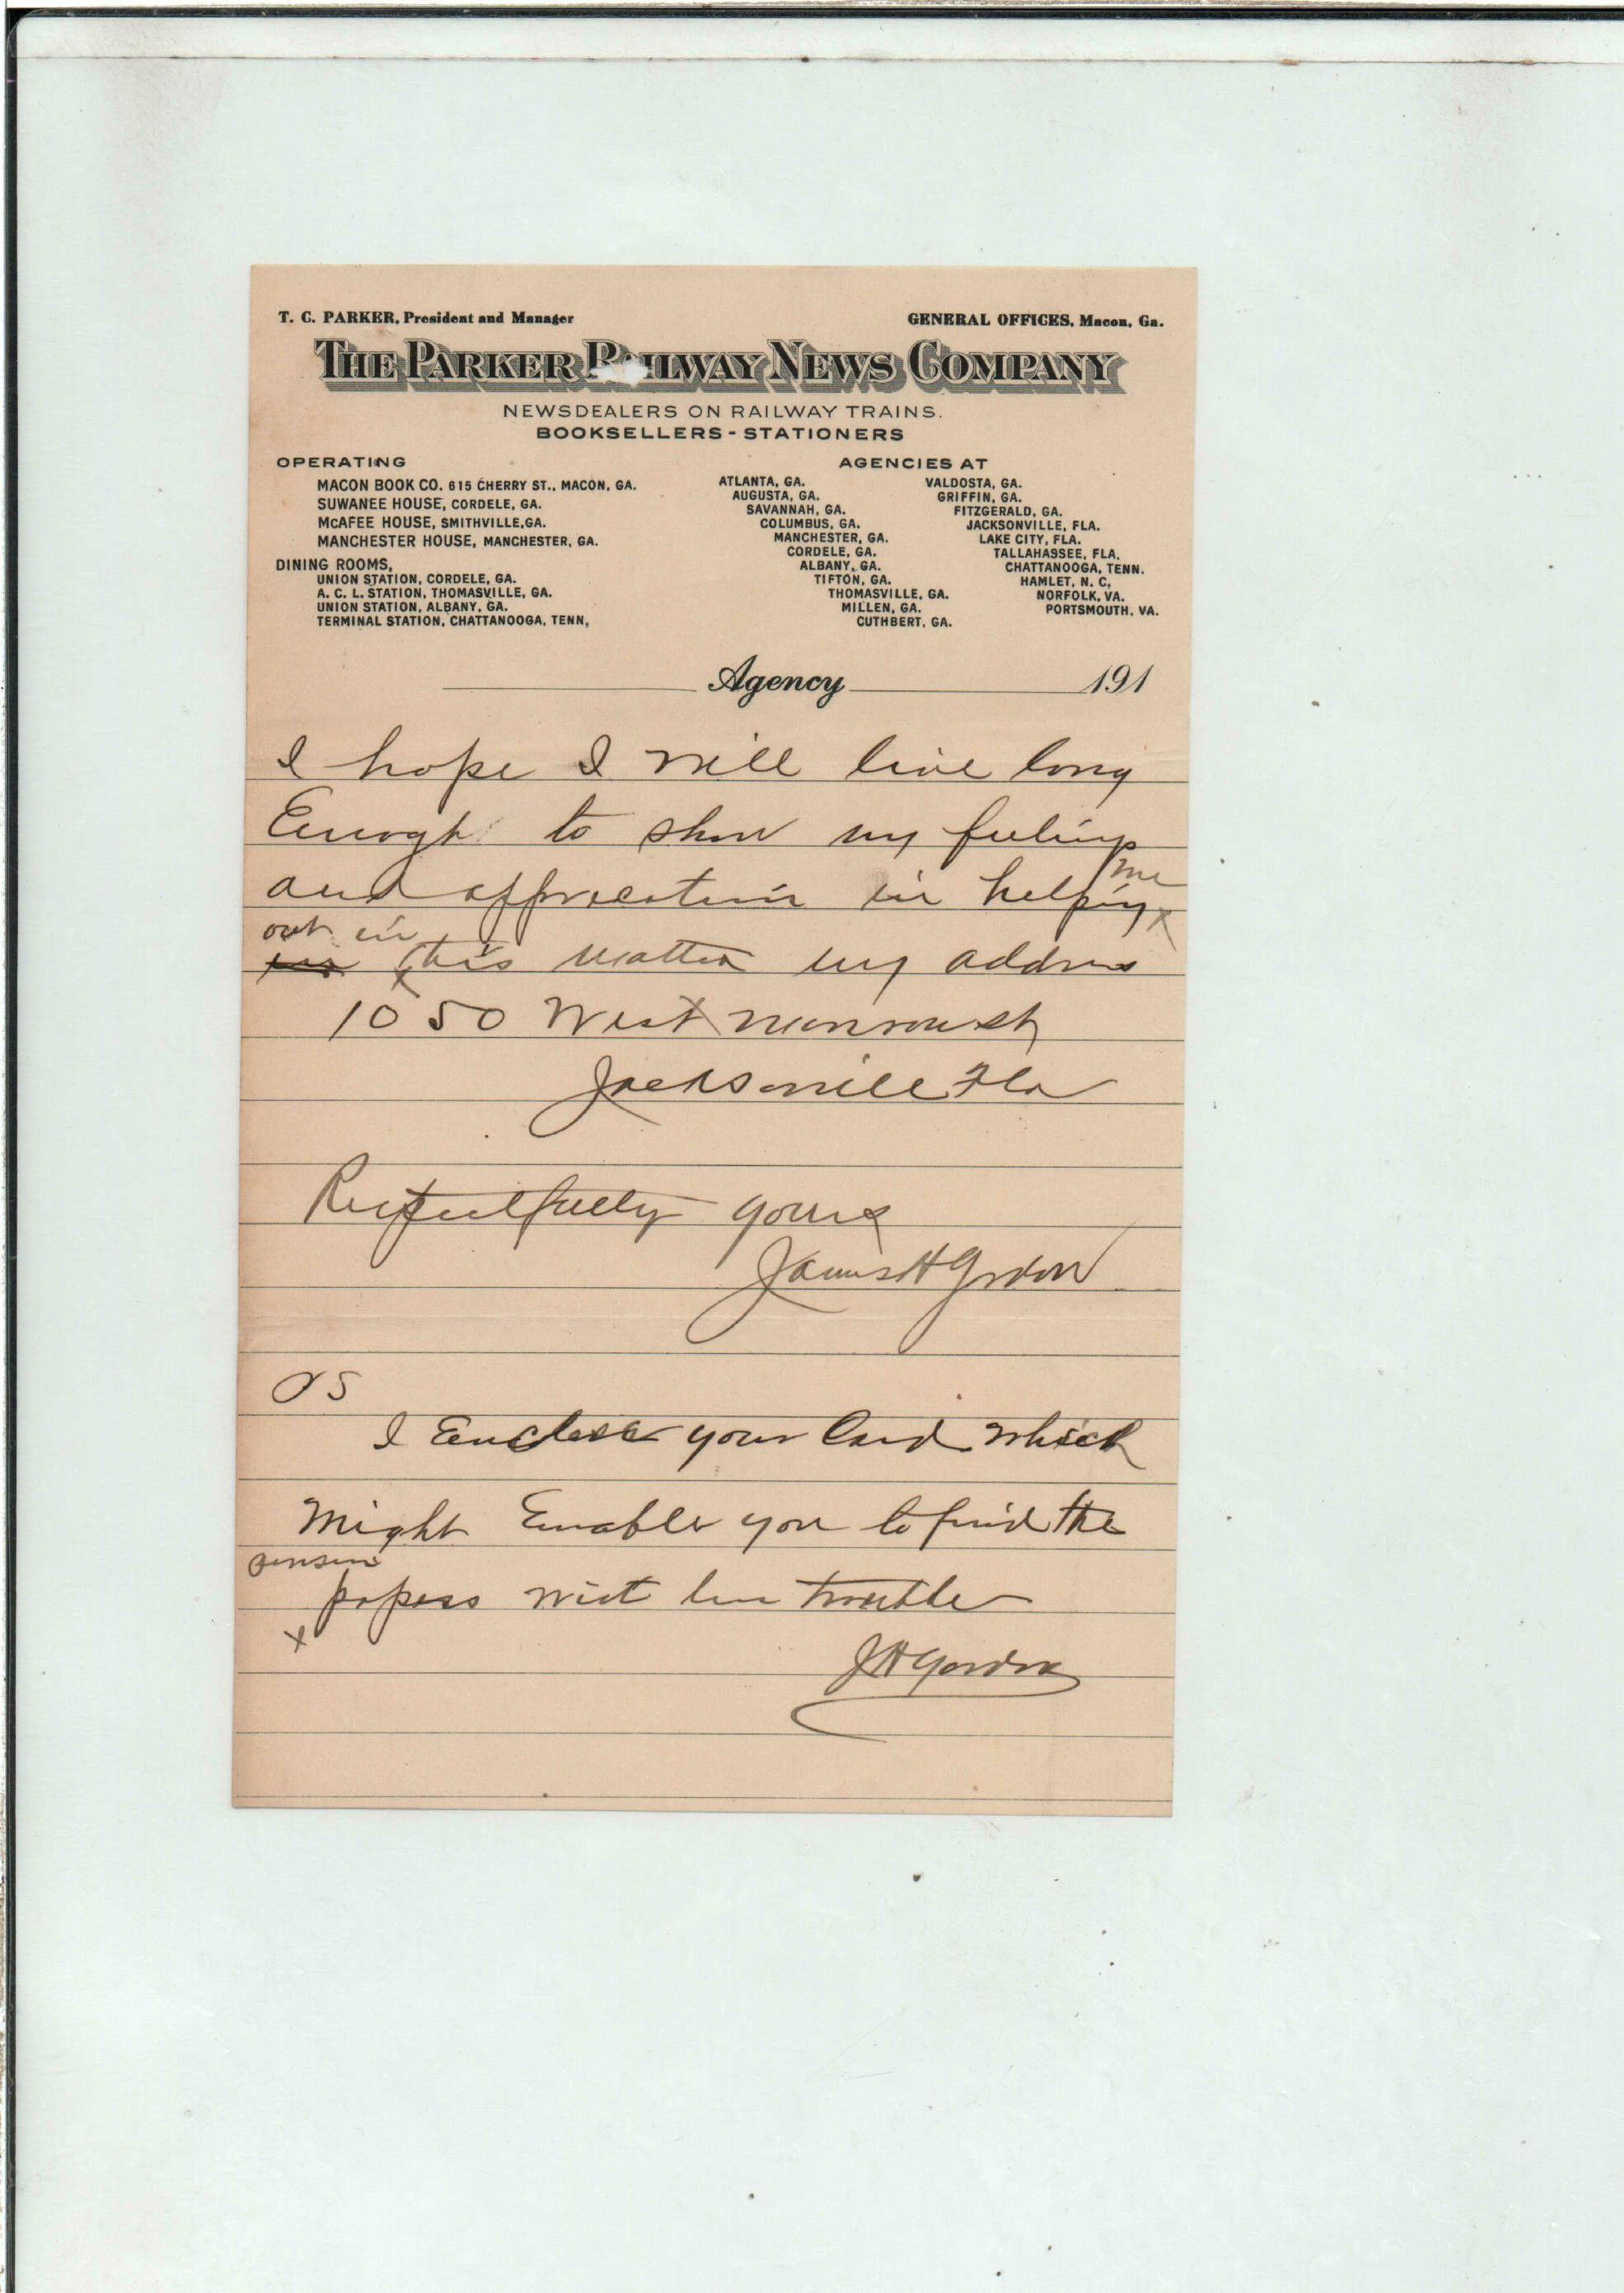 T. C. PARKER, President and Manager GENERAL OFFICES, Macon, Ga.
THE PARKER RAILWAY NEWS COMPANY
NEWSDEALERS ON RAILWAY TRAINS.
BOOKSELLERS - STATIONERS
OPERATING
MACON BOOK CO. 615 CHERRY ST., MACON, GA.
SUWANEE HOUSE, CORDELE, GA.
McAFEE HOUSE, SMITHVILLE, GA.
MANCHESTER HOUSE, MANCHESTER, GA.
DINING ROOMS,
UNION STATION, CORDELE, GA.
A. C. L. STATION, THOMASVILLE, GA.
UNION STATION, ALBANY, GA.
TERMINAL STATION, CHATTANOOGA, TENN,
AGENCIES AT
ATLANTA, GA.
AUGUSTA, GA.
SAVANNAH, GA.
COLUMBUS, GA.
MANCHESTER, GA.
CORDELE, GA.
ALBANY, GA.
TIFTON, GA.
THOMASVILLE, GA.
MILLEN, GA.
CUTHBERT, GA.
VALDOSTA, GA.
GRIFFIN, GA.
FITZGERALD, GA.
JACKSONVILLE, FLA.
LAKE CITY, FLA.
TALLAHASSEE, FLA.
CHATTANOOGA, TENN.
HAMLET, N. C.
NORFOLK, VA.
PORTSMOUTH, VA.
Agency 191
I hope I will live long
Enough to show my feelings
and appreciation in helping me
out in this matter my address
1050 West Monroe st
Jacksonville Fla
Respectfully yours
James H Gordon
PS
I Enclose your Card which
Might Enable you to find the
pension
papers with trouble
J H Gordon